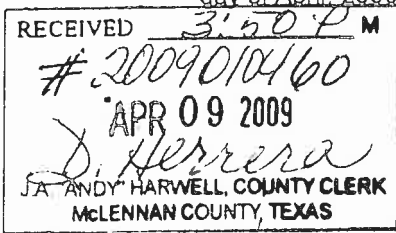 RECEIVED 3:50 P M
# 2009010460
APR 09 2009
D. Herrera
J.A. "ANDY" HARWELL, COUNTY CLERK
McLENNAN COUNTY, TEXAS